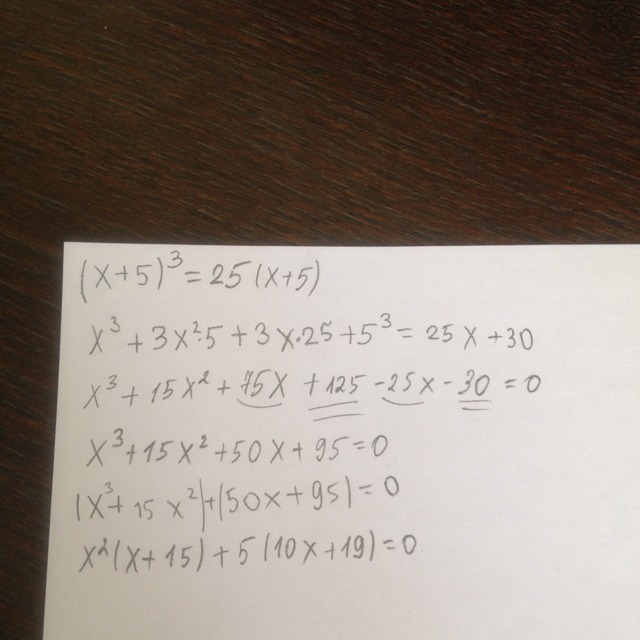 (x+5)³=25(x+5)
x³+3x²·5+3x·25+5³=25x+30
x³+15x²+75x+125-25x-30=0
x³+15x²+50x+95=0
(x³+15x²)+(50x+95)=0
x²(x+15)+5(10x+19)=0